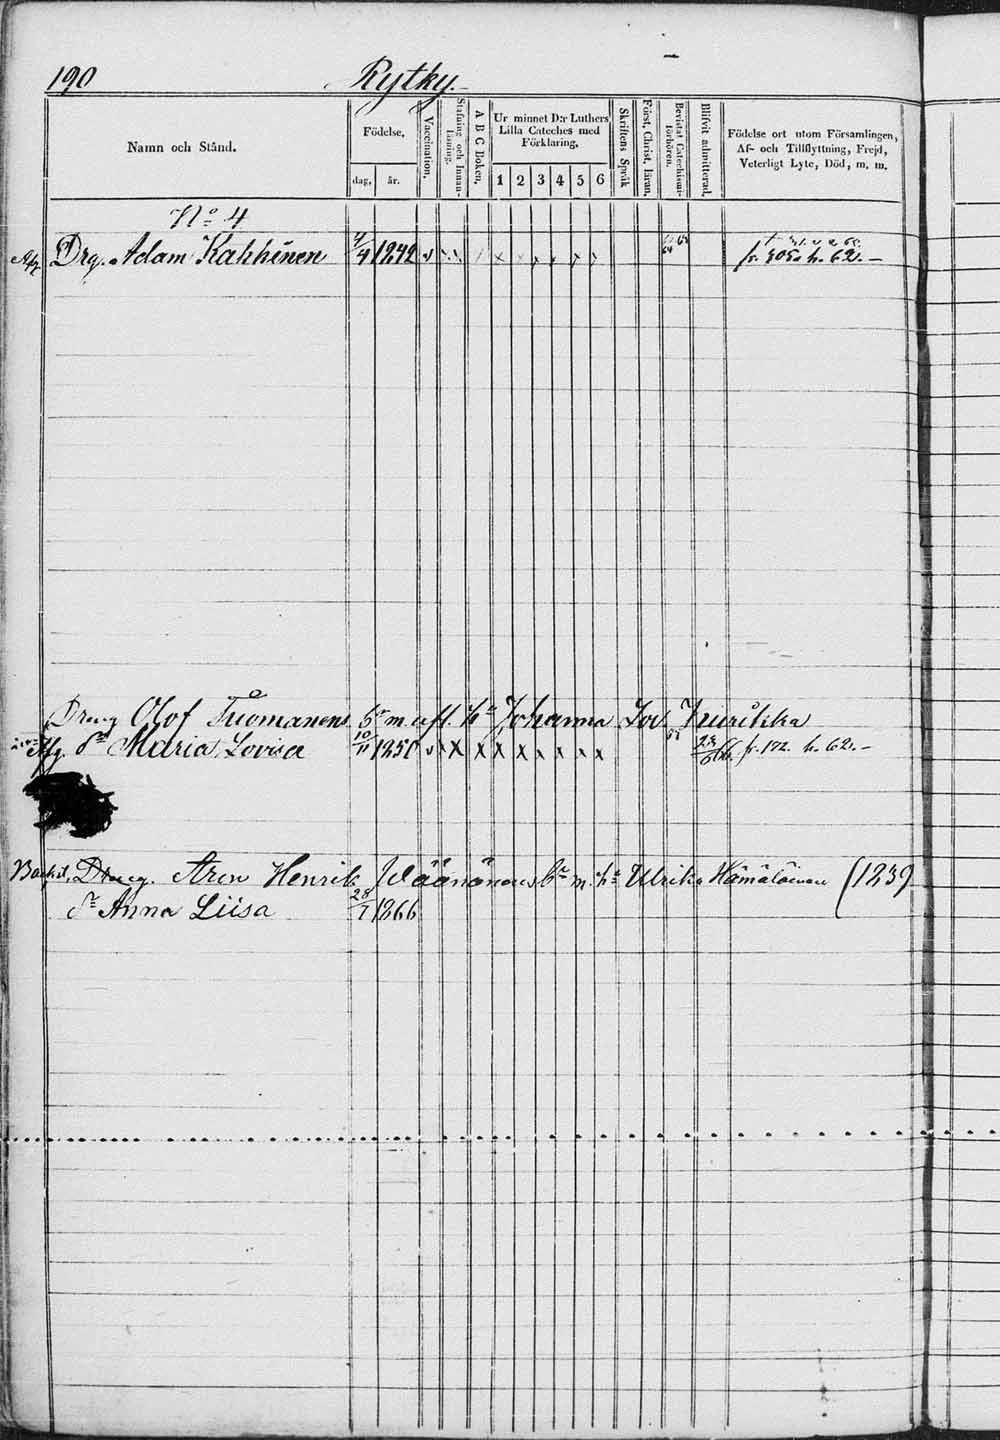 190 Rytky.
Namn och Stånd.
Födelse,
dag, år.
Vaccination.
Stafning och Innanläsning.
A B C Boken.
Ur minnet D:r Luthers Lilla Cateches med Förklaring,
1 2 3 4 5 6
Skriftens Språk
Först. Christ. läran.
Bevistat Catechismiförhören.
Blifvit admitterad.
Födelse ort utom Församlingen,
Af- och Tillflyttning, Frejd,
Veterligt Lyte, Död, m. m.
No 4
Drg. Adam Kakkinen 4/4 1842 fr. 305. h. 62. –
Dreng Olof Tuomanens Johanna Lov.
dr Maria Lovisa 10/11 1850 fr. 172. h. 62. –
Dreng. Aron Henrik Wäänänens m. h. Ulrika Hämäläinen (1239
dr Anna Liisa 28/7 1866